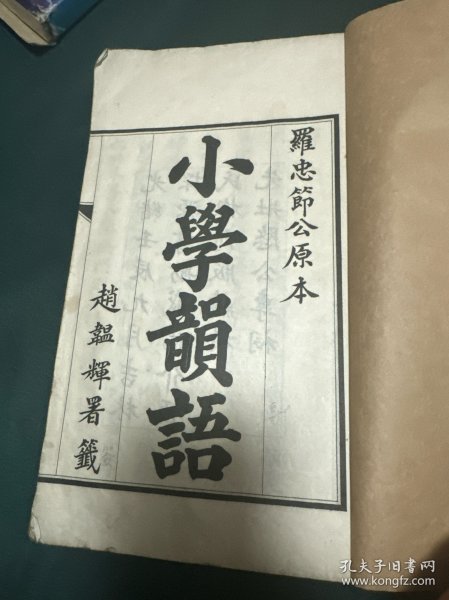 羅忠節公原本
小學韻語
趙韞輝署籤
孔夫子旧书网
www.kongfz.com